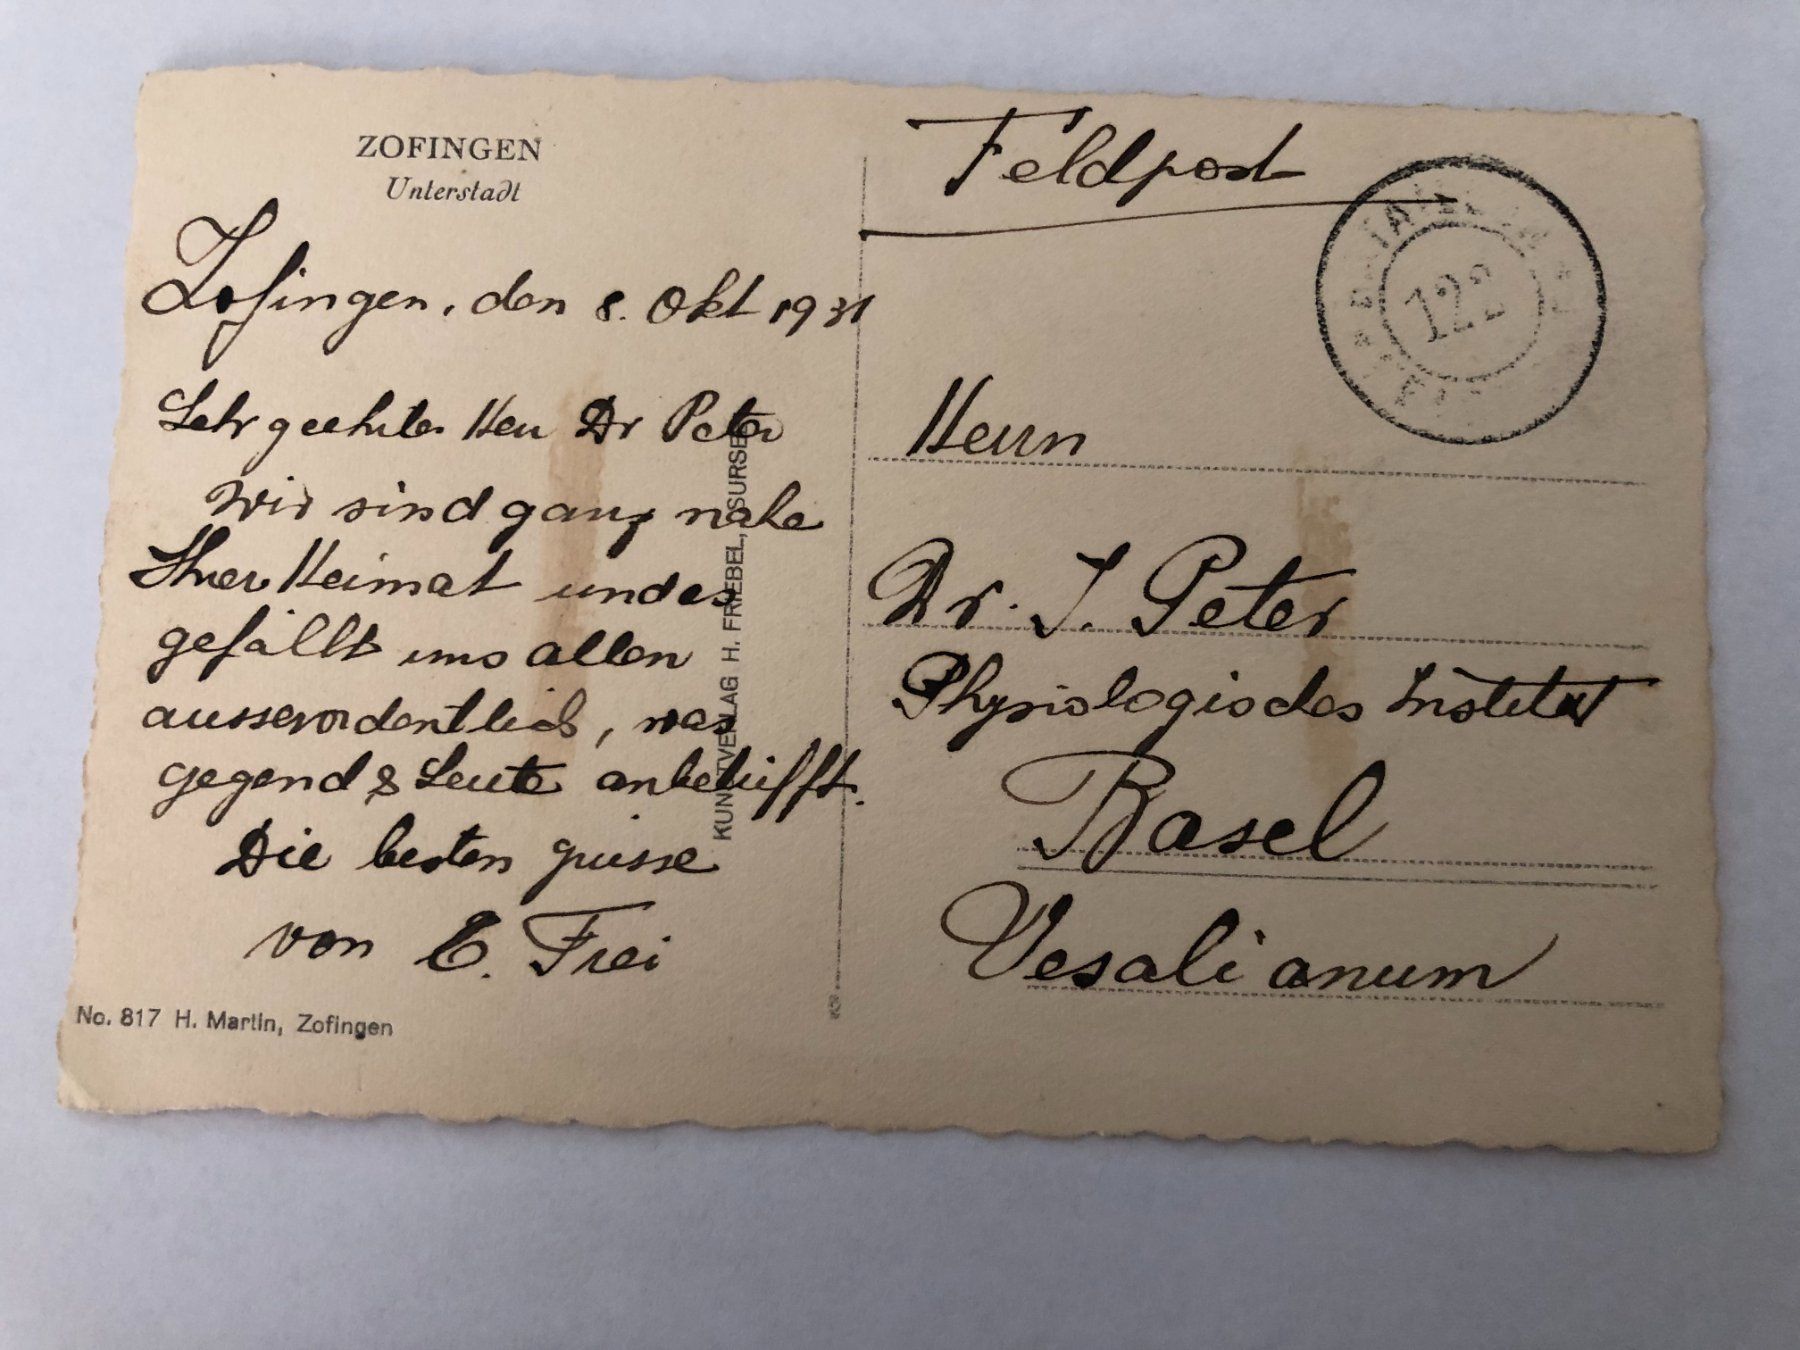 ZOFINGEN
Unterstadt
Zofingen, den 8. Okt 1931
Sehr geehrter Herr Dr Peter
Wir sind ganz nahe
Ihrer Heimat und es
gefällt uns allen
ausserordentlich, was
gegend & Leute anbetrifft.
Die besten grüsse
von E. Frei
No. 817 H. Martin, Zofingen
KUNSTVERLAG H. FRIEBEL, SURSEE
Feldpost
122
Herrn
Dr. J. Peter
Physiologisches Institut
Basel
Vesalianum